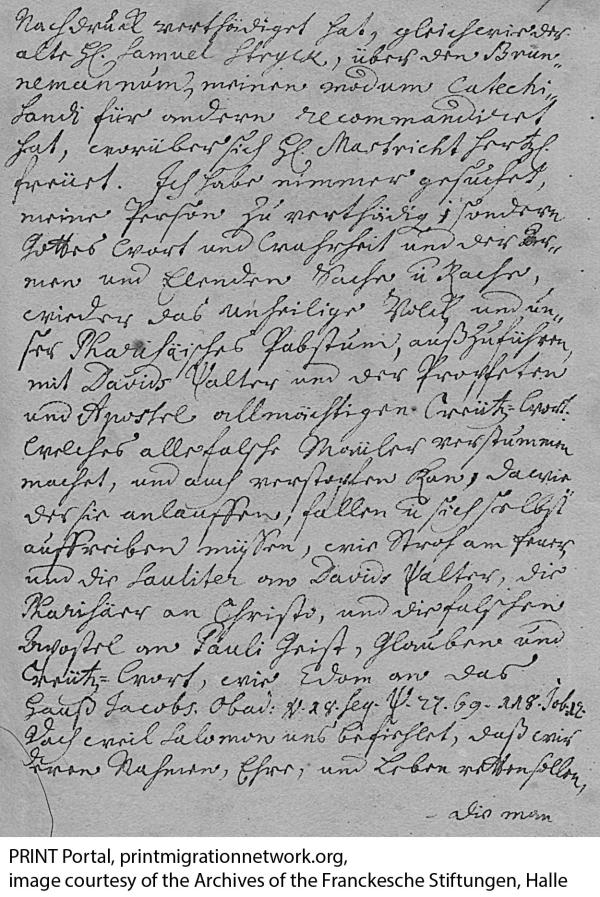 Nachdruck verthädiget hat, gleichwie der
alte H. Samuel Stryck, über den Brun-
nemannum, meinen modum Catechi-
sandi für andern recommandiret
hat, worüber sich H. Mastricht hertzl.
freuet. Ich habe nimmer gesuchet,
meine Person zu verthädig; sondern
Gottes Wort und Wahrheit und der Ar-
men und Elenden Sache u Rache,
wieder das unheilige Volck und un-
ser Pharisäisches Pabstum, außzuführen,
mit Davids Psalter und der Propheten
und Apostel allmächtigen Creütz-Wort.
Welches alle falsche Mäuler verstummen
machet, und auch verstopfen kan, dawie
der sie anlauffen, fallen u sich selbst
auffreiben müssen, wie Stroh am Feuer
und die Sauliter an Davids Psalter, die
Pharisäer an Christo, und die falschen
Apostel an Pauli Geist, Glauben und
Creütz-Wort, wie Edom an das
Hauß Jacobs. Obad: v. 18. seq. Ps. 27. 69. 118. Job. 12.
Doch weil Salomon uns befiehlet, daß wir
deren Nahmen, Ehre, und Leben retten sollen,
die man
PRINT Portal, printmigrationnetwork.org,
image courtesy of the Archives of the Franckesche Stiftungen, Halle